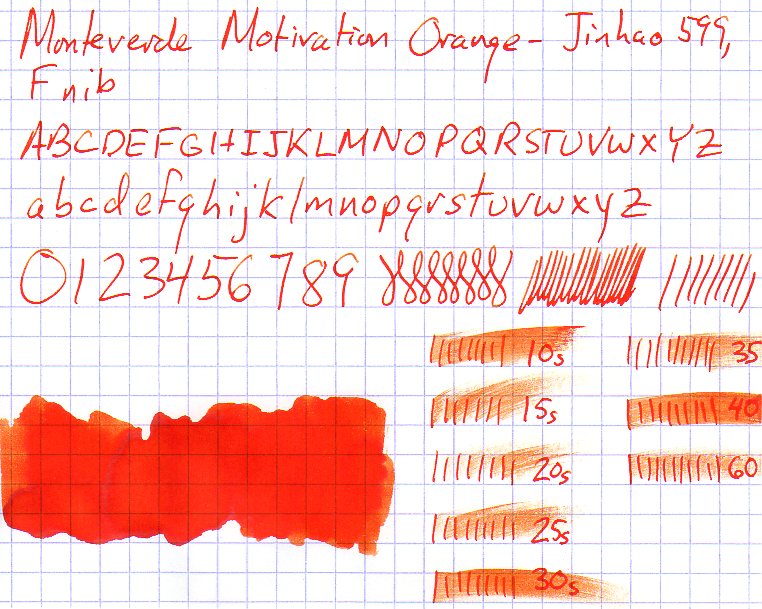 Monteverde Motivation Orange - Jinhao 599,
F nib
ABCDEFGHIJKLMNOPQRSTUVWXYZ
abcdefghijklmnopqrstuvwxyz
0123456789
10s 35
15s 40
20s 60
25s
30s